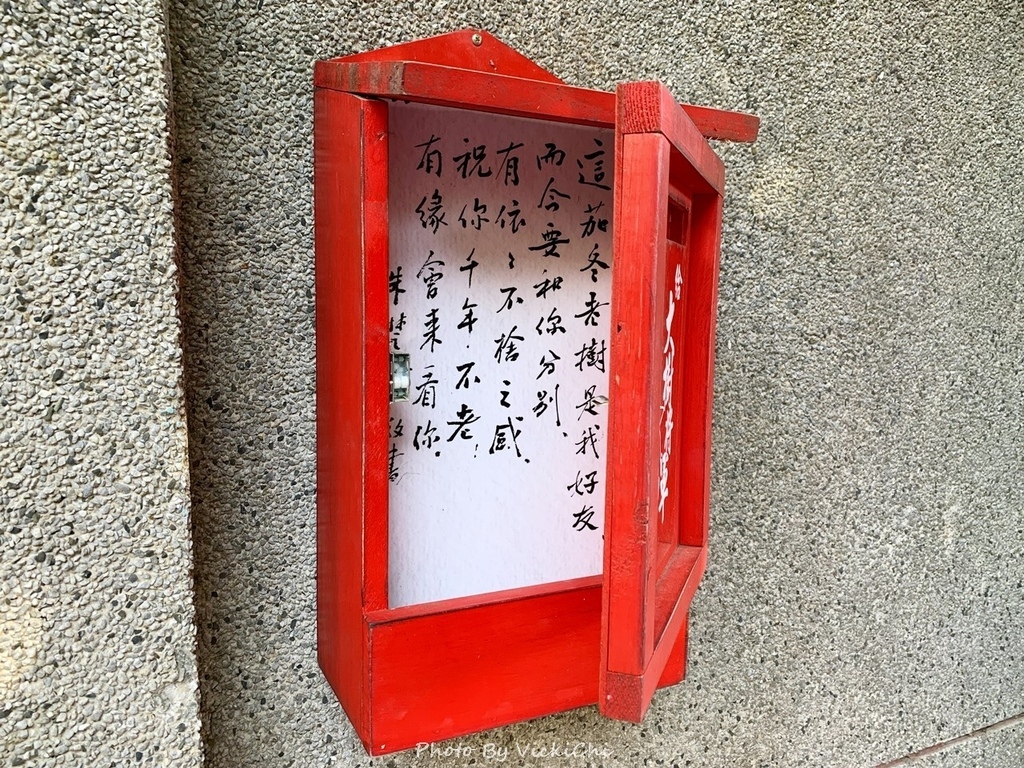 這茄冬老樹是我好友、
而今要和你分別、
有依〻不捨之感、
祝你千年不老！
有緣會來看你。
Photo By VickiChe